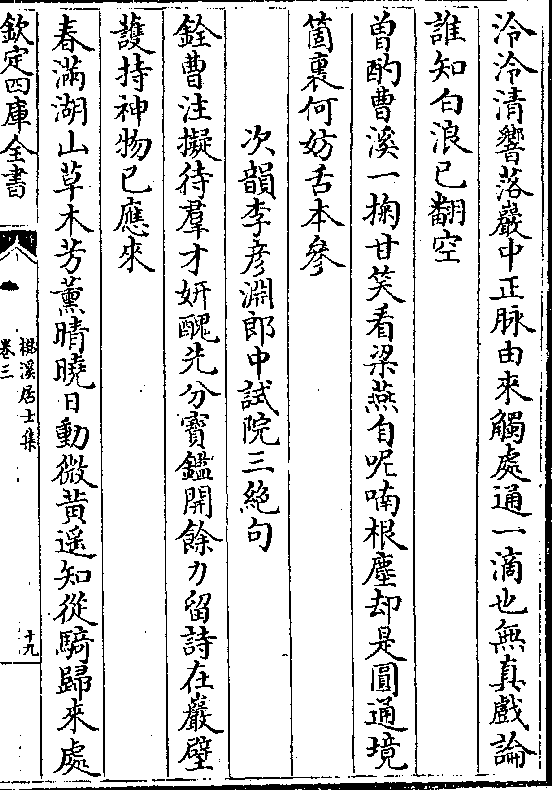 泠泠清響落巖中正脉由來觸處通一滴也無真戲論
誰知白浪已翻空
曽酌曹溪一掬甘笑看梁燕自呢喃根塵却是圓通境
箇裏何妨舌本參
次韻李彦淵郎中試院三絶句
銓曹注擬待羣才妍醜先分寳鑑開餘力留詩在巖壁
䕶持神物已應來
春滿湖山草木芳薰晴曉日動微黄遥知從騎歸來處
欽定四庫全書
楳溪居士集
卷三
十九